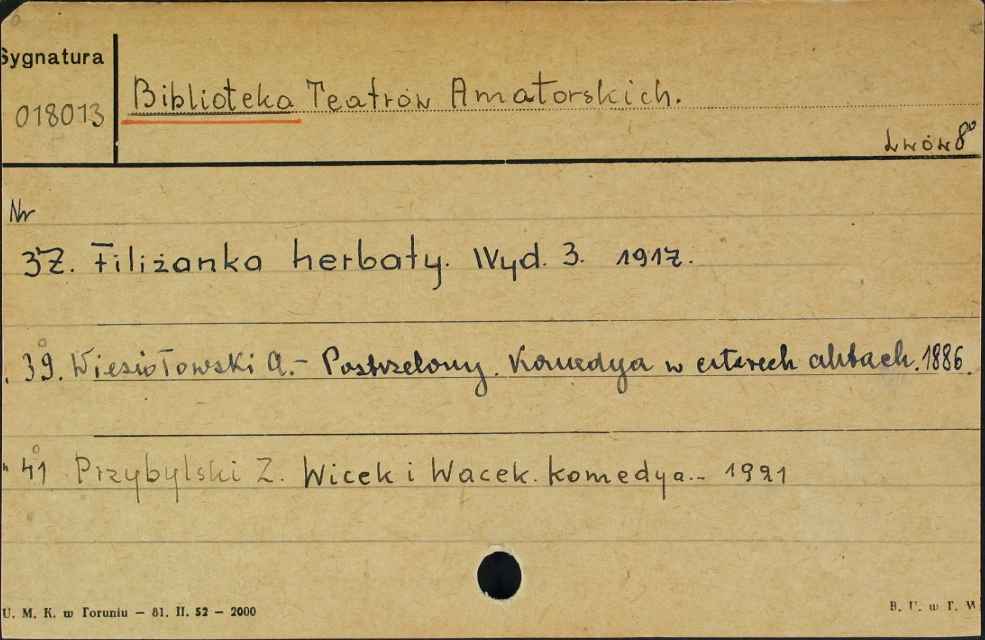 Sygnatura
018013
Biblioteka Teatrów Amatorskich.
Lwów 8°
Nr
37. Filiżanka herbaty. Wyd. 3. 1917.
" 39. Wiesiołowski A. - Postrzelony. Komedya w czterech aktach. 1886.
" 41 Przybylski Z. Wicek i Wacek. Komedya.- 1921
U. M. K. w Toruniu — 81. II. 52 — 2000
B. U. w T. W